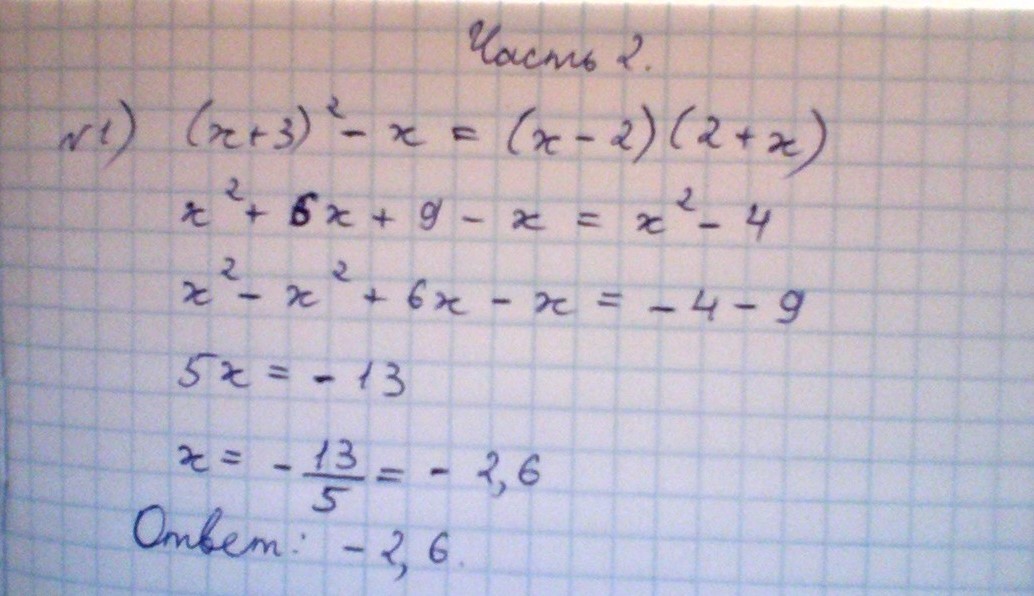 Часть 2.
№1) (x+3)² - x = (x - 2)(2 + x)
x² + 6x + 9 - x = x² - 4
x² - x² + 6x - x = - 4 - 9
5x = - 13
x = - 13/5 = - 2,6
Ответ: - 2,6.